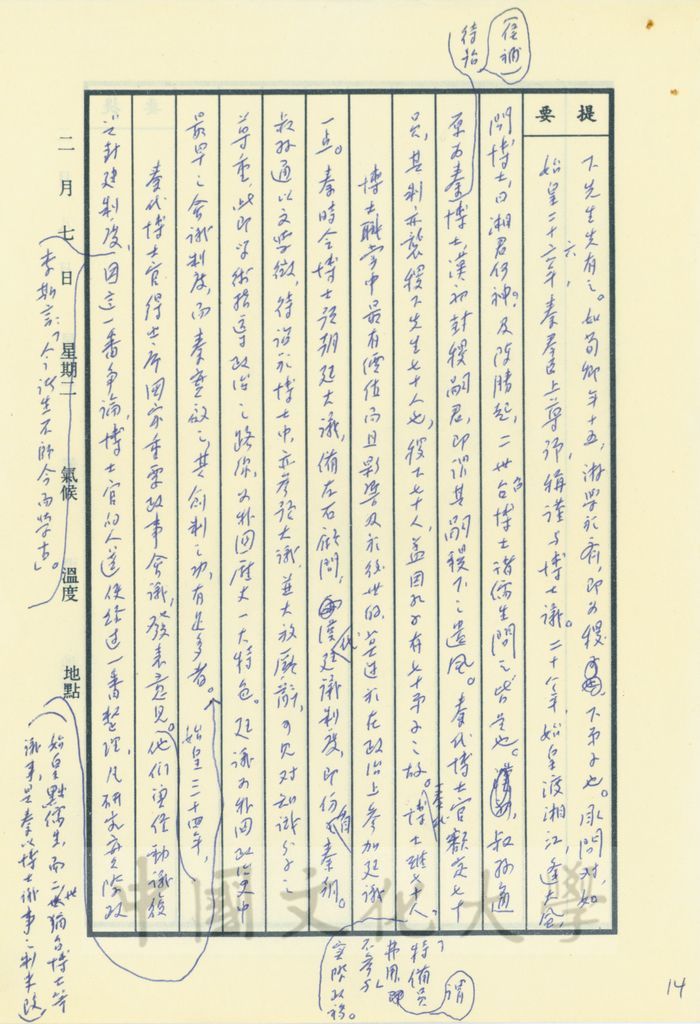 提要
下先生先有之。如荀卿年十五，游學於齊，即為稷下弟子也。承問對，如
始皇二十六年，秦群臣上尊號，稱謹與博士議。二十八年，始皇渡湘江，逢大風，
問博士，曰湘君何神？及陳勝起，二世召博士諸儒生問之皆是也。叔孫通
（後補）
待詔
原為秦博士，漢初封稷嗣君，即謂其嗣稷下之遺風。秦代博士官額定七十
員，其制亦襲稷下先生七十人也，稷下七十人，蓋因孔子有七十弟子之故。博士雖七十人
秦代
謂
特備員
弗用，
不參加
實際政務。
博士職掌中最有價值而且影響及於後世的，莫過於在政治上參加廷議
一点。秦時令博士預朝廷大議，備左右顧問，漢代廷議制度，即仿自秦朝。
叔孫通以文學徵，待詔於博士中，亦參預大議，並大放厥辭，可見對知識分子之
尊重，此即學術指導政治之路線，為我國歷史一大特色。廷議為我國政治史中
最早之會議制度，而秦實啟之，其創制之功，有足多者。
始皇三十四年，
秦代博士官得出席國家重要政事會議，發表意見。他們更任動議復
活封建制度，因這一番爭論，博士官的人選便經過一番整理，凡研究實際政
李斯言：「今諸生不師今而學古」。
（始皇黜儒生，而二世猶召博士等
議事，是秦以博士議事之制未改）
二月七日 星期二 氣候 溫度 地點
中國文化大學
14